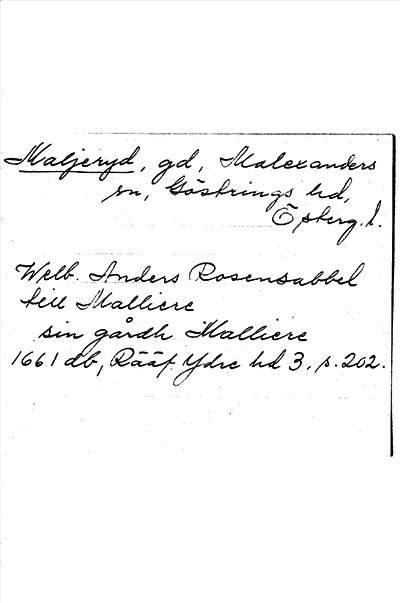 Maljeryd, gd, Malexanders
sn, Göstrings hd,
Östergn. l.
Welb. Anders Rosensabbel
till Malliere
sin gårdh Malliere
1661 db, Rääf Ydre hd 3, s. 202.